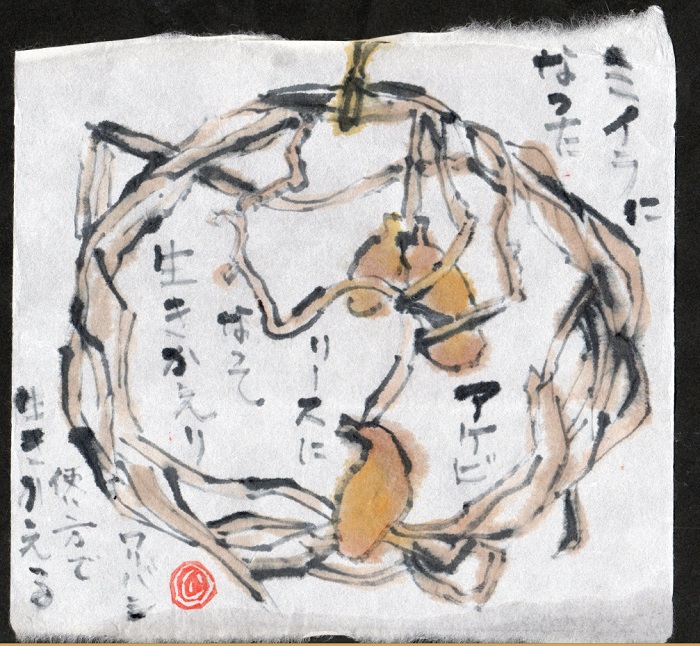 ミイラに
なった
アケビ
リースに
なって
生きかえり
ワリバシ
使い方で
生きかえる